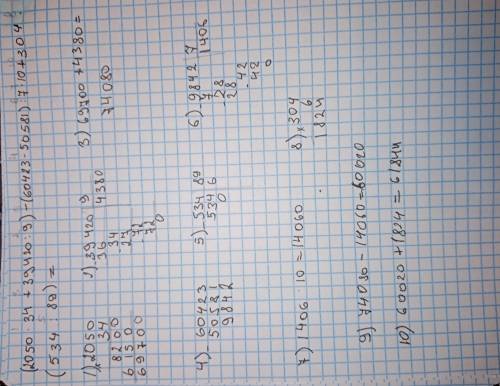 (2050 · 34 + 39420 : 9) - (60423 - 50581) : 7 · 10 + 304 ·
(534 : 89) =
1) 2050
× 34
8200
6150
69700
2) 39420 9
36 4380
34
-27
72
72
0
3) 69700 + 4380 =
74080
4) - 60423
50581
9842
5) - 534 89
534 6
0
6) - 9842 7
7 1406
- 28
28
42
- 42
0
7) 1406 · 10 = 14060
8) × 304
6
1824
9) 74080 - 14060 = 60020
10) 60020 + 1824 = 61844